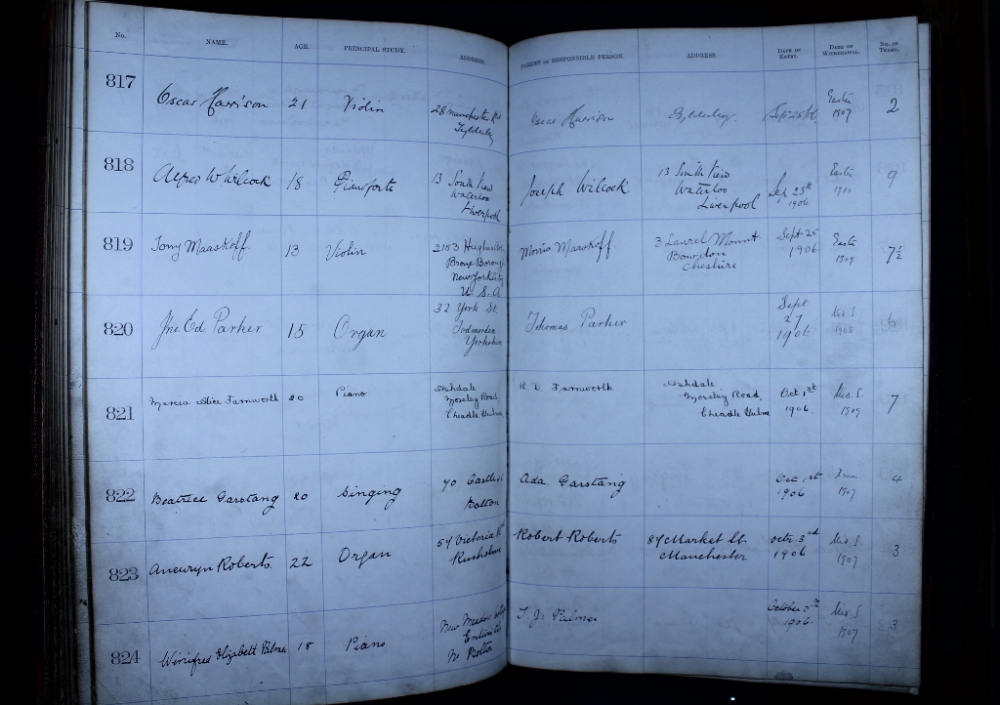 No. NAME. AGE. PRINCIPAL STUDY. ADDRESS. PARENT or RESPONSIBLE PERSON. ADDRESS. DATE OF ENTRY. DATE OF WITHDRAWAL. NO. OF TERMS.
817 Oscar Harrison 21 Violin 28 Manchester Rd Oscar Harrison Tyldesley Easter 1907 2
Tyldesley
818 Alfred W Wilcock 18 Pianoforte 13 South View Joseph Wilcock 13 South View Sep 25th Easter 9
Waterloo Waterloo 1906
Liverpool Liverpool
819 Tony Maaskoff 13 Violin 2153 Hughes Morris Maaskoff 3 Laurel Mount Sept 25 Easter 7½
Bronx Borough Bowdon 1906 1909
New York City Cheshire
U. S. A
820 Jno. Ed. Parker 15 Organ 32 York St. Thomas Parker Sept Mis. S. 6
Todmorden 27 1908
Yorkshire 1906
821 Marcia Alice Farnworth 20 Piano Oakdale R. D. Farnworth Oakdale Oct 1st Mis. S. 7
Moseley Road Moseley Road, 1906 1909
Cheadle Hulme Cheadle Hulme
822 Beatrice Garstang 20 Singing 70 Ada Garstang Oct 1st 1907 4
Bolton 1906
823 Aneuryn Roberts 22 Organ 54 Victoria Rd Robert Roberts 87 Market St. Octr 3rd Mis. S. 3
Rusholme Manchester 1906 1907
824 Winifred Elizabeth Palmer 18 Piano New T. J. Palmer October 3rd Mis S 3
1906 1907
Nr Bolton